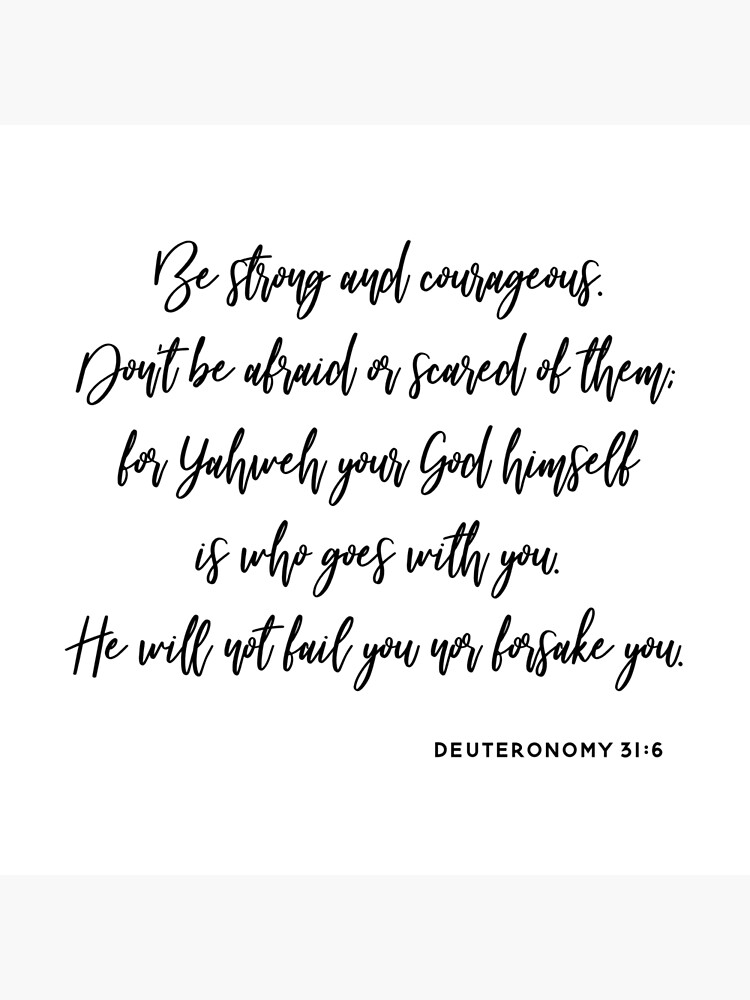 Be strong and courageous.
Don't be afraid or scared of them;
for Yahweh your God himself
is who goes with you.
He will not fail you nor forsake you.
DEUTERONOMY 31:6